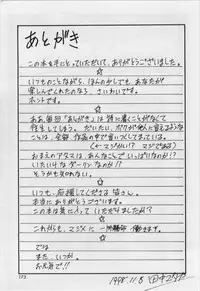 あとがき
この本を手にとっていただいて、ありがとうございました。
☆
いつものことながら、ほんの少しでも、あなたが
楽しんでくれたのなら、さいわいです。
ホントです。
☆
ああ毎回「あとがき」は特に書くことがなくて
苦労してしまう。だいたい、ボクが
ことは全部、作品の中で言いつくしてしまっている。
(←マジかい!? マジである)
おまえのアタマはあんなことでいっぱいなのか!?
いたいけなダーリンなのか!?
そうかも知れない。
☆
いつも、応援してくださる皆さん。
本当にありがとうございます。
この本は気に入っていただけましたか?
これからも、マジメに一所懸命 働きます。
では
また、いつか。
お元気で!!
1998.11.8
173